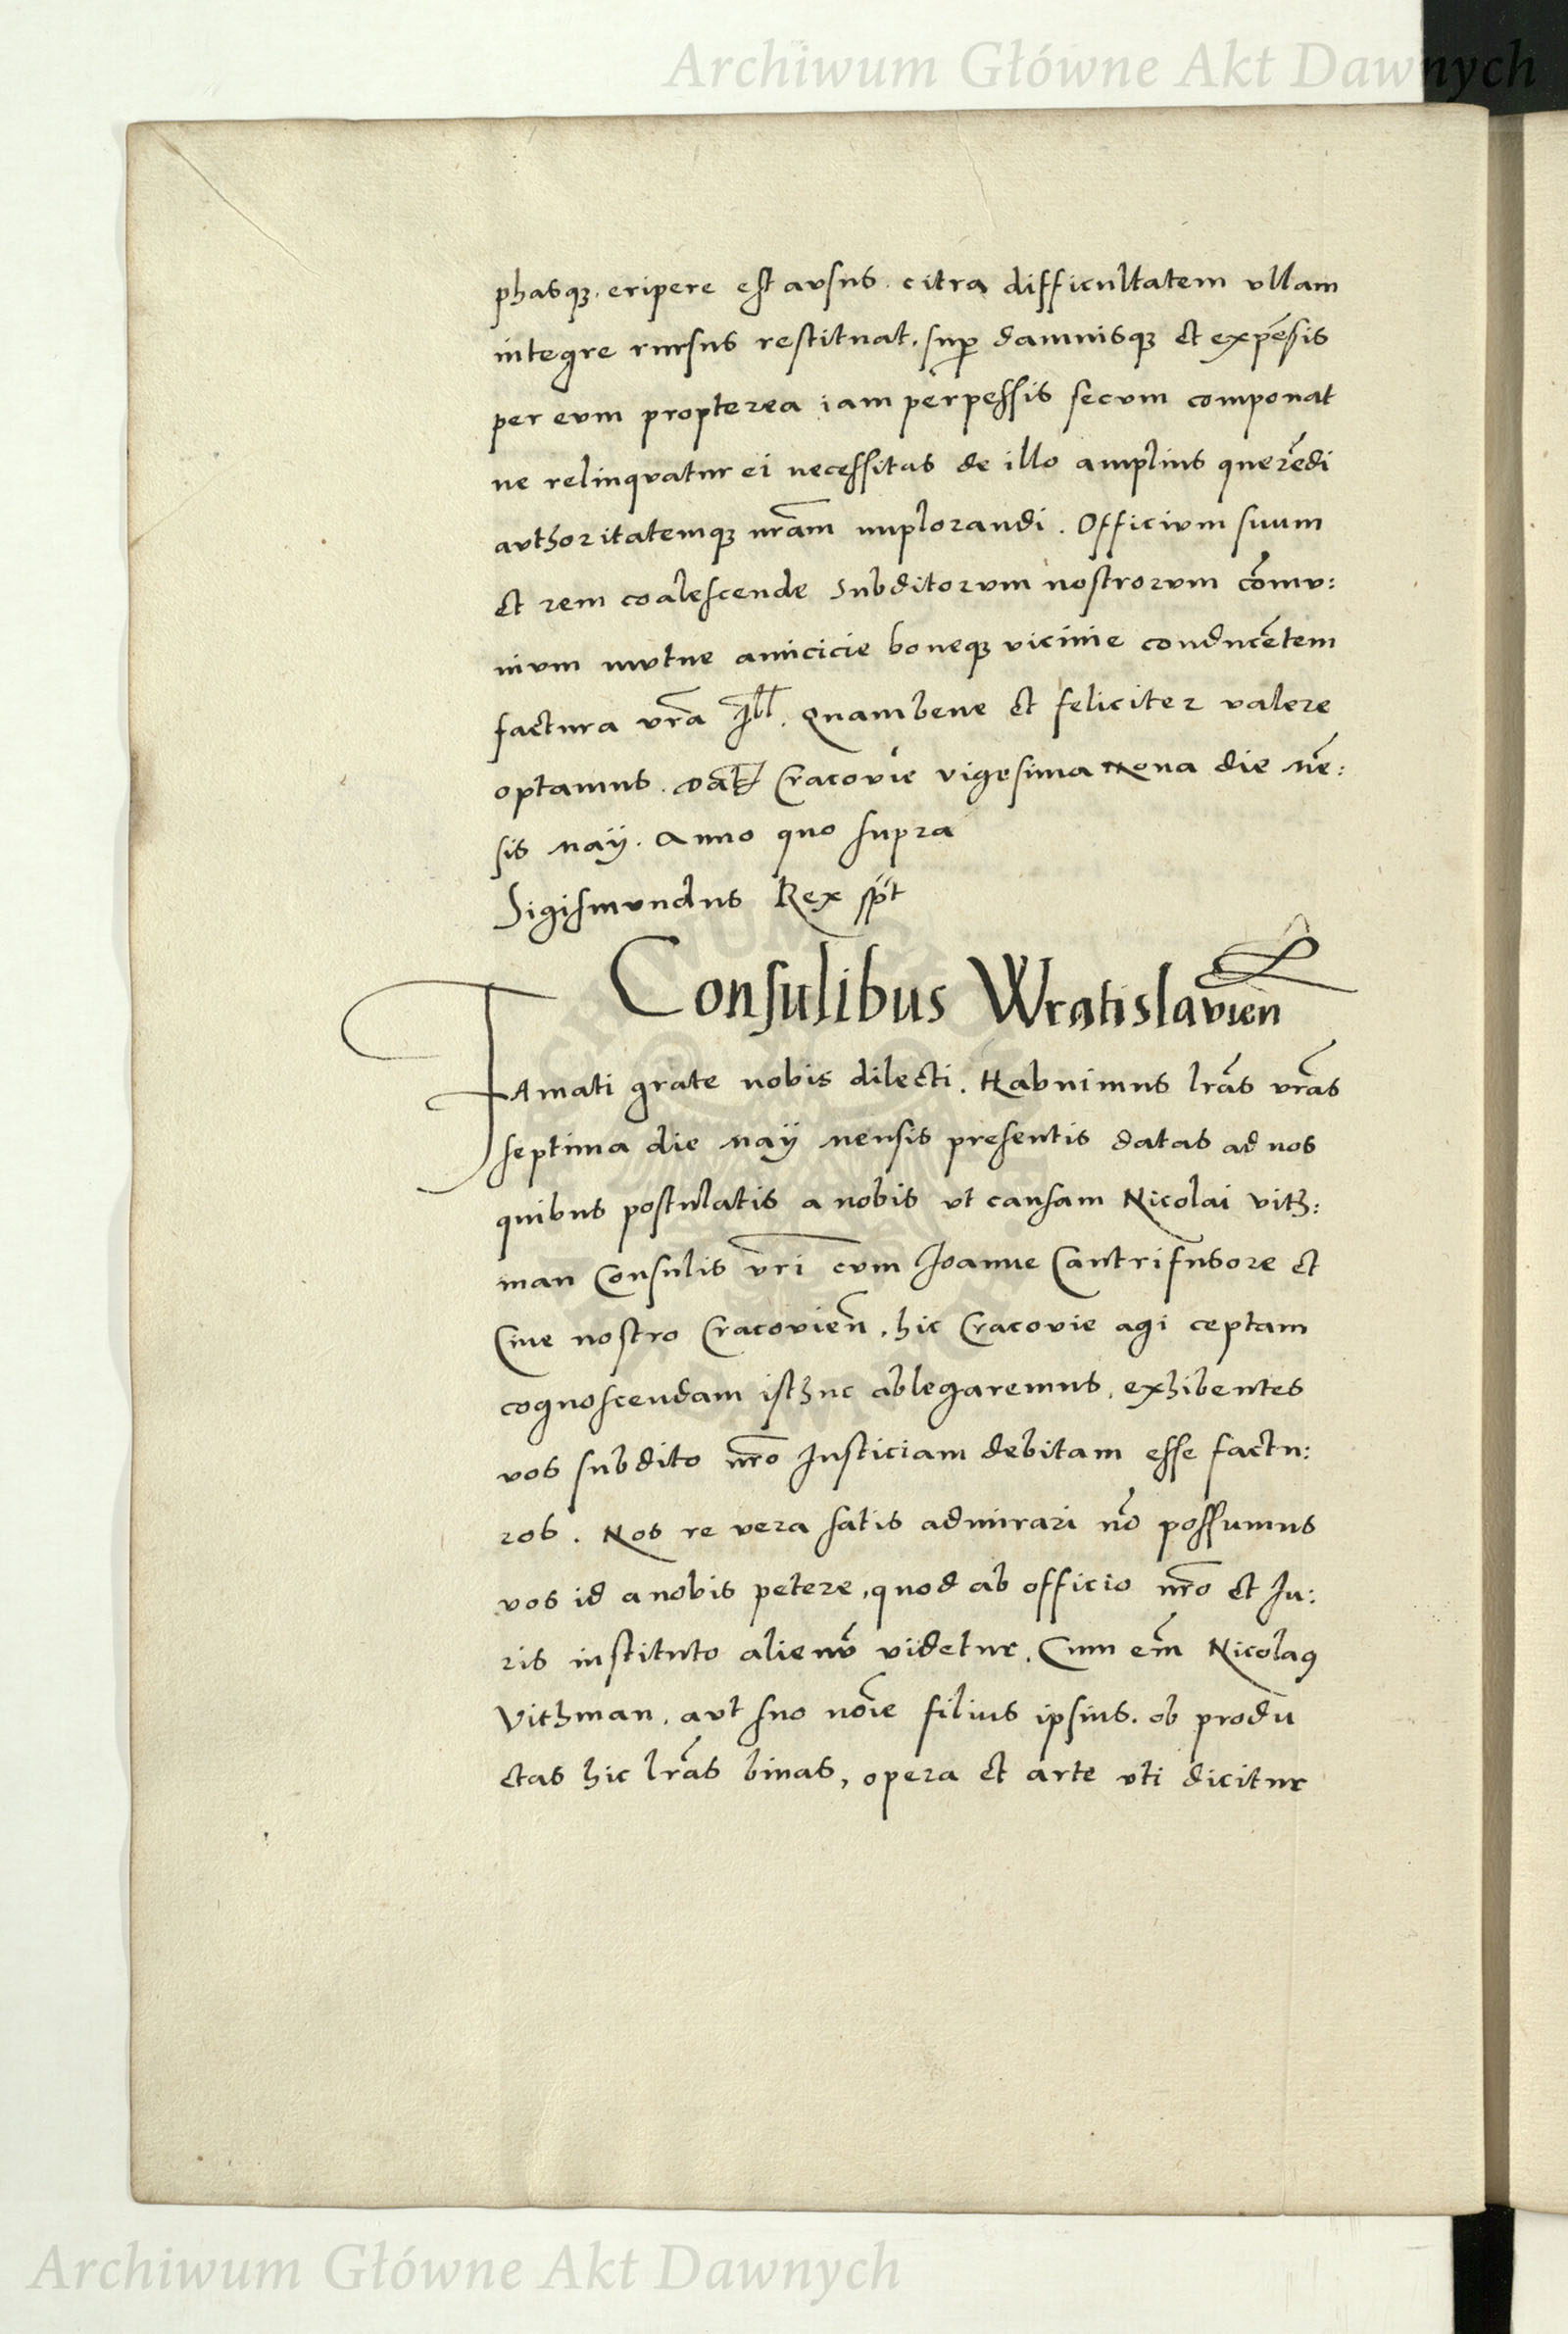 Archiwum Główne Akt Dawnych
phasqꝫ. eripere est ausus. citra difficultatem vllam
integre rursus restituat. suꝑ damnisqꝫ et expēsis
per eum propterea iam perpessis secum componat
ne relinquatur ei necessitas de illo amplius querēdi
authoritatemqꝫ nr̄am implorandi. Officium suum
et rem coalescende Subditorum nostrorum com̄u:
nium mutue amicicie boneqꝫ vicinie conducētem
factura vr̄a Ill. Quambene et feliciter valere
optamus. Dat Cracovie vigesima Nona die Mē:
sis Maij. Anno quo supra
Sigismundus Rex sp̄t
Consulibus Wratislavien
Famati grate nobis dilecti. Habuimus lr̄as vr̄as
septima die Maij Mensis presentis datas ad nos
quibus postulatis a nobis vt causam Nicolai Vith:
man Consulis vr̄i cum Ioanne Cantrifusore et
Ciue nostro Cracovien̄. hic Cracovie agi ceptam
cognoscendam isthuc ablegaremus. exhibentes
vos subdito nr̄o Iusticiam debitam esse factu:
ros. Nos re vera satis admirari nō possumus
vos id a nobis petere, quod ab officio nr̄o et Iu:
ris instituto alienū videtur. Cum em̄ Nicolaꝰ
Vithman. aut suo noīe filius ipsius. ob produ
ctas hic lr̄as binas, opera et arte vti dicitur
Archiwum Główne Akt Dawnych